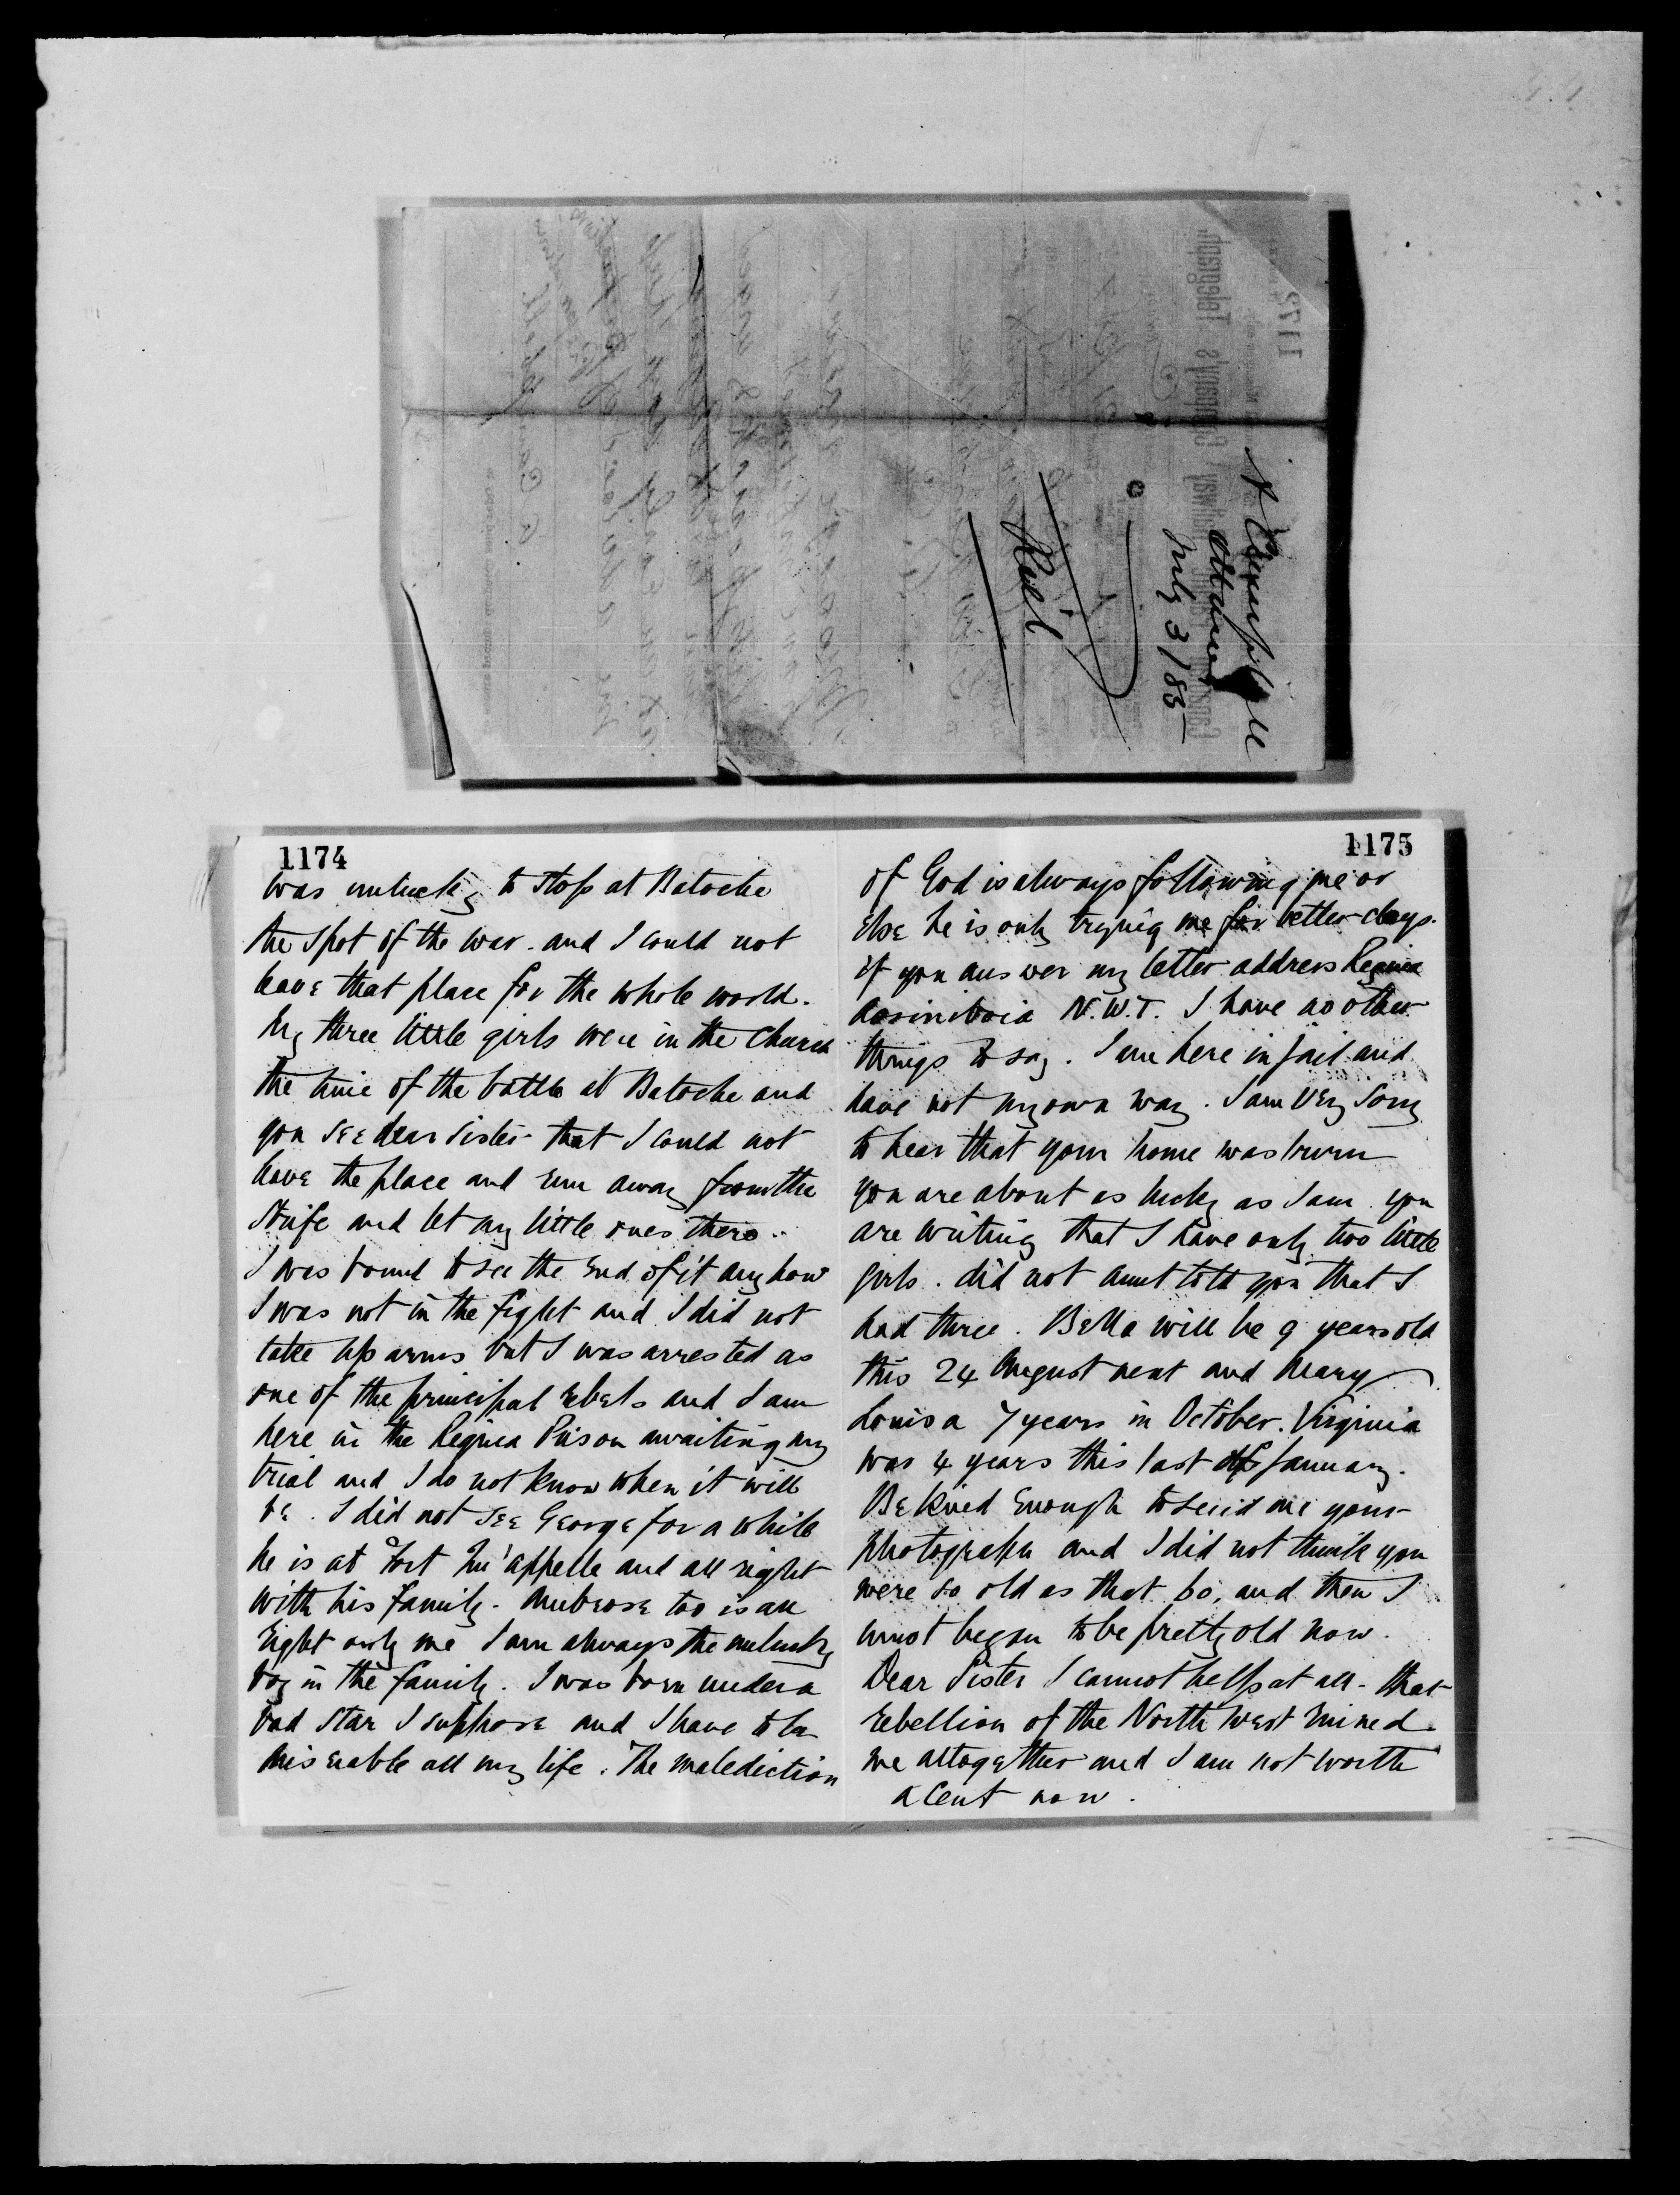 Ottawa
July 3/85
Riel
1174
was unlucky to stop at Batoche
the spot of the war. and I could not
leave that place for the whole world.
My three little girls were in the Church
the time of the battle at Batoche and
you see dear sister that I could not
leave the place and run away from the
Strife and let my little ones there.
I was bound to see the End of it anyhow
I was not in the fight and I did not
take up arms but I was arrested as
one of the principal rebels and I am
here in the Regina Prison awaiting my
trial and I do not know when it will
be. I did not see George for a while
he is at Fort Qu'appelle and all right
with his family. Ambrose too is all
right only me I am always the unlucky
boy in the family. I was born under a
bad star I suppose and I have to be
miserable all my life. The malediction
1175
of God is always following me or
else he is only trying me for better days.
if you answer my letter address Regina
Assiniboia N.W.T. I have no other
things to say. I am here in jail and
have not my own way. I am very sorry
to hear that your home was burn
you are about as lucky as I am. you
are writing that I have only two little
girls. did not aunt told you that I
had three. Bella will be 9 years old
this 24 August next and Mary
Louisa 7 years in October. Virginia
was 4 years this last of January.
Be kind Enough to send me your
photograph and I did not think you
were so old as that 60, and then I
must began to be pretty old now.
Dear Sister I cannot help at all. that
rebellion of the North West ruined
me altogether and I am not worth
a cent now.